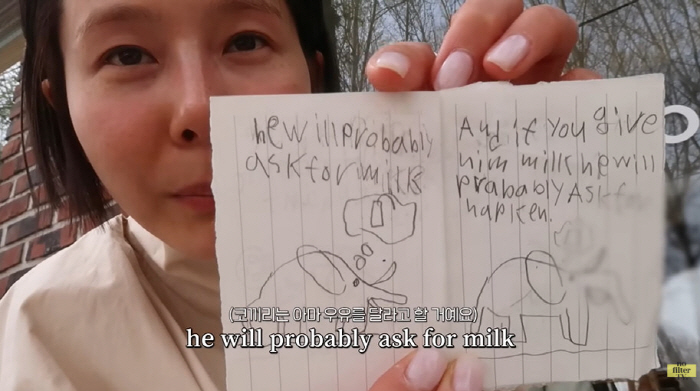 he will probably
ask for milk
And if you give
him milk he will
probably Ask for
napken.
(코끼리는 아마 우유를 달라고 할 거예요)
he will probably ask for milk
no
filter